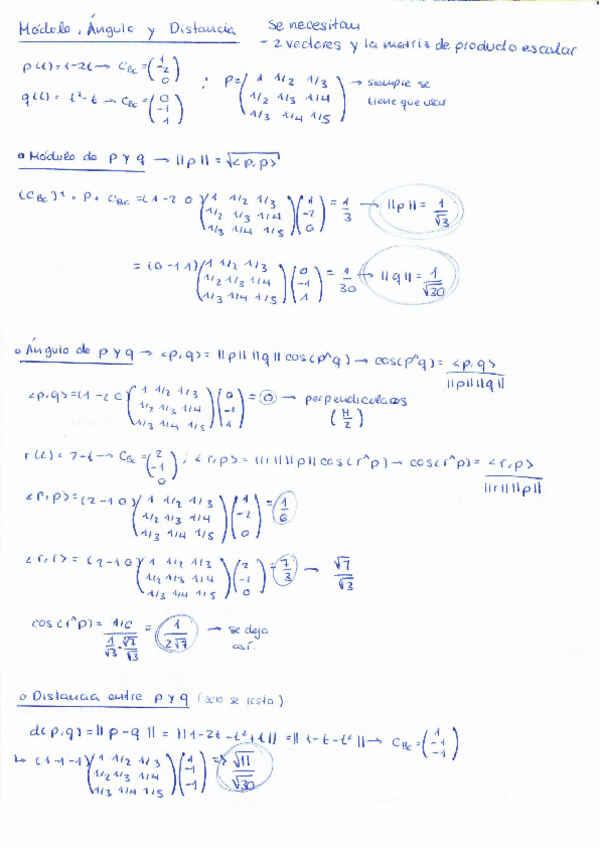 Módulo, Ángulo y Distancia se necesitan
- 2 vectores y la matriz de producto escalar
p(t)=1-2t → C_BC = (1 -2 0) ; P = (1 1/2 1/3 → siempre se
q(t) = t²-t → C_BC = (0 -1 1) 1/2 1/3 1/4 tiene que usar
1/3 1/4 1/5)
o Módulo de p y q → ||p|| = √<p,p>
(C_BC)ᵗ · P · C_BC = (1 -2 0) (1 1/2 1/3 1/2 1/3 1/4 1/3 1/4 1/5) (1 -2 0) = 1/3 → ||p|| = 1/√3
= (0 -1 1) (1 1/2 1/3 1/2 1/3 1/4 1/3 1/4 1/5) (0 -1 1) = 1/30 → ||q|| = 1/√30
o Ángulo de p y q → <p,q> = ||p|| ||q|| cos(p^q) → cos(p^q) = <p,q> / ||p|| ||q||
<p,q> = (1 -2 0) (1 1/2 1/3 1/2 1/3 1/4 1/3 1/4 1/5) (0 -1 1) = 0 → perpendiculares
(π/2)
r(t) = 2-t → C_BC = (2 -1 0) ; <r,p> = ||r|| ||p|| cos(r^p) → cos(r^p) = <r,p> / ||r|| ||p||
<r,p> = (2 -1 0) (1 1/2 1/3 1/2 1/3 1/4 1/3 1/4 1/5) (1 -2 0) = 1/6
<r,r> = (2 -1 0) (1 1/2 1/3 1/2 1/3 1/4 1/3 1/4 1/5) (2 -1 0) = 7/3 → √7/√3
cos(r^p) = 1/6 / (1/√3 · √7/√3) = 1/2√7 → se deja
así.
o Distancia entre p y q (solo se resta)
d(p,q) = ||p-q|| = ||1-2t-t²+t|| = ||1-t-t²|| → C_BC = (1 -1 -1)
↳ (1 -1 -1) (1 1/2 1/3 1/2 1/3 1/4 1/3 1/4 1/5) (1 -1 -1) => √11/√30